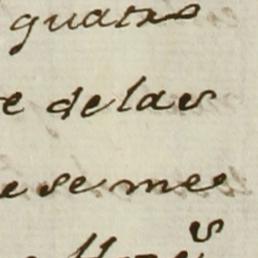 quatro
e delas
e se me